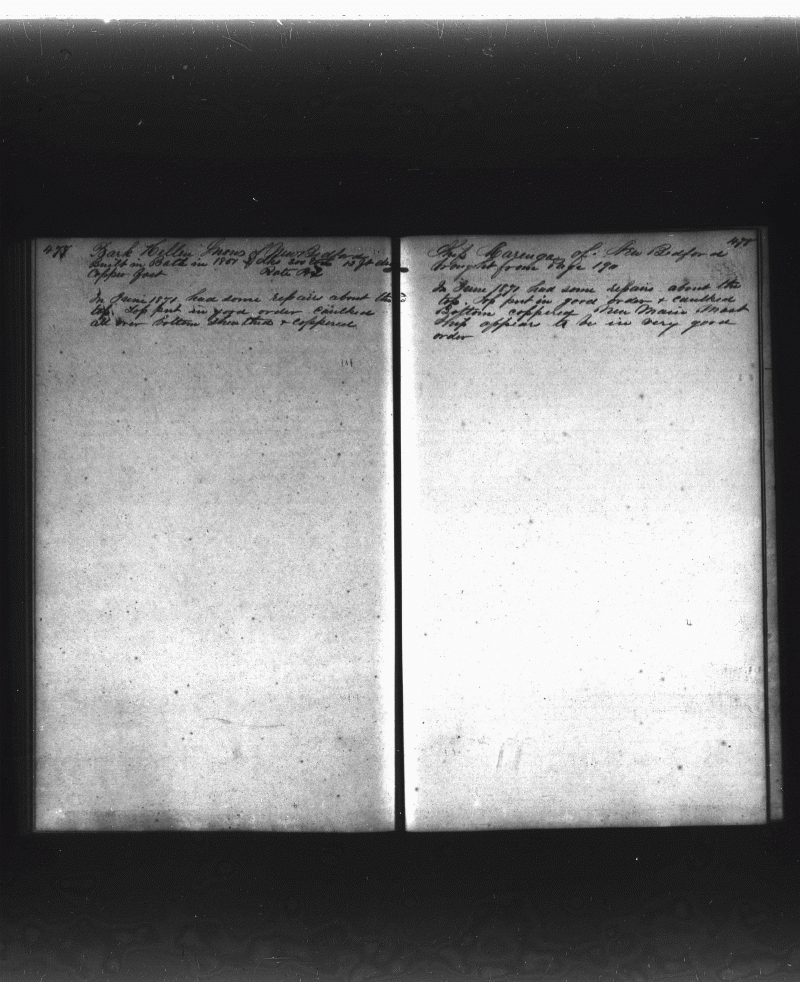 477
Bark Hellen Snow of New Bedford
Built in Bath in 1851
Copper fast Rate A2
In June 1871 had some repairs about the
top. Top put in good order caulked
all over bottom Sheathed & coppered
478
Ship Marengo of New Bedford
brought from Page 190
In June 1871 had some repairs about the
top. Top put in good order & caulked
Bottom coppered New Main Mast
Ship appears to be in very good
order